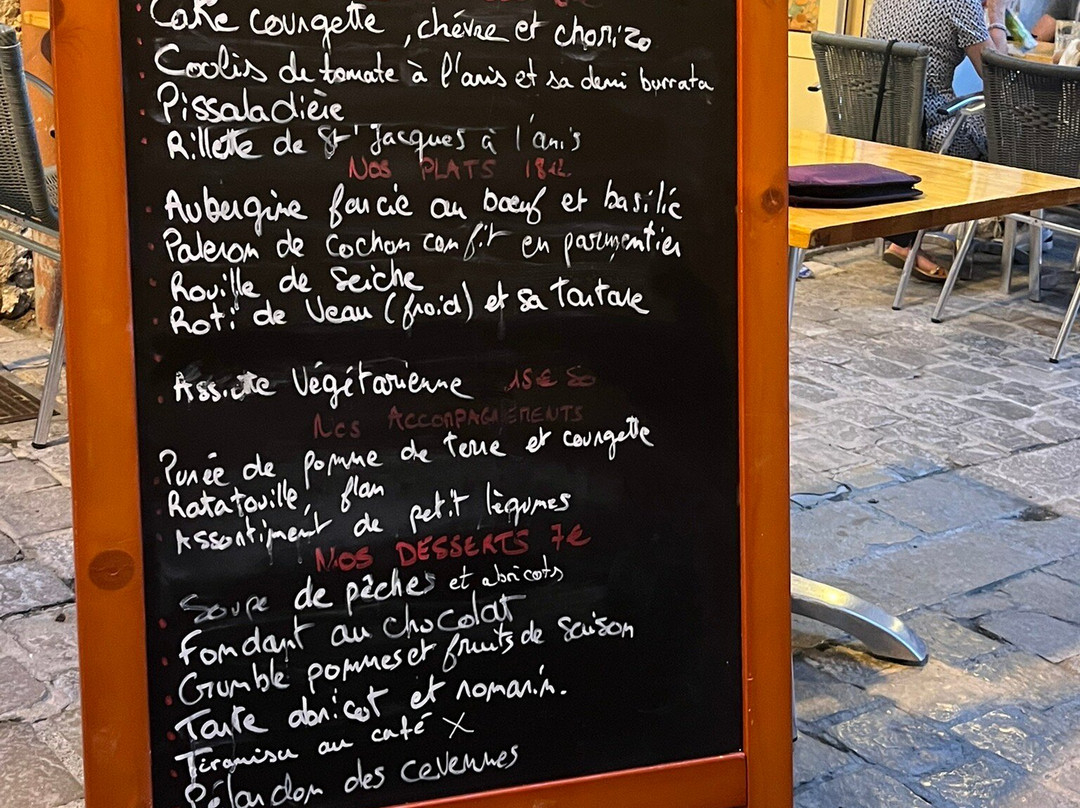 Cake courgette, chèvre et chorizo
Coulis de tomate à l'anis et sa demi burrata
Pissaladière
Rillette de St Jacques à l'anis
NOS PLATS 18€
Aubergine farcie au bœuf et basilic
Paleron de cochon confit en parmentier
Rouille de seiche
Roti de Veau (froid) et sa tartare
Assiette Végétarienne 15€50
Nos ACCOMPAGNEMENTS
Purée de pomme de terre et courgette
Ratatouille, flan
Assortiment de petit légumes
NOS DESSERTS 7€
Soupe de pêches et abricots
Fondant au chocolat
Crumble pommes et fruits de saison
Tarte abricot et romarin.
Tiramisu au café X
Pélardon des cevennes